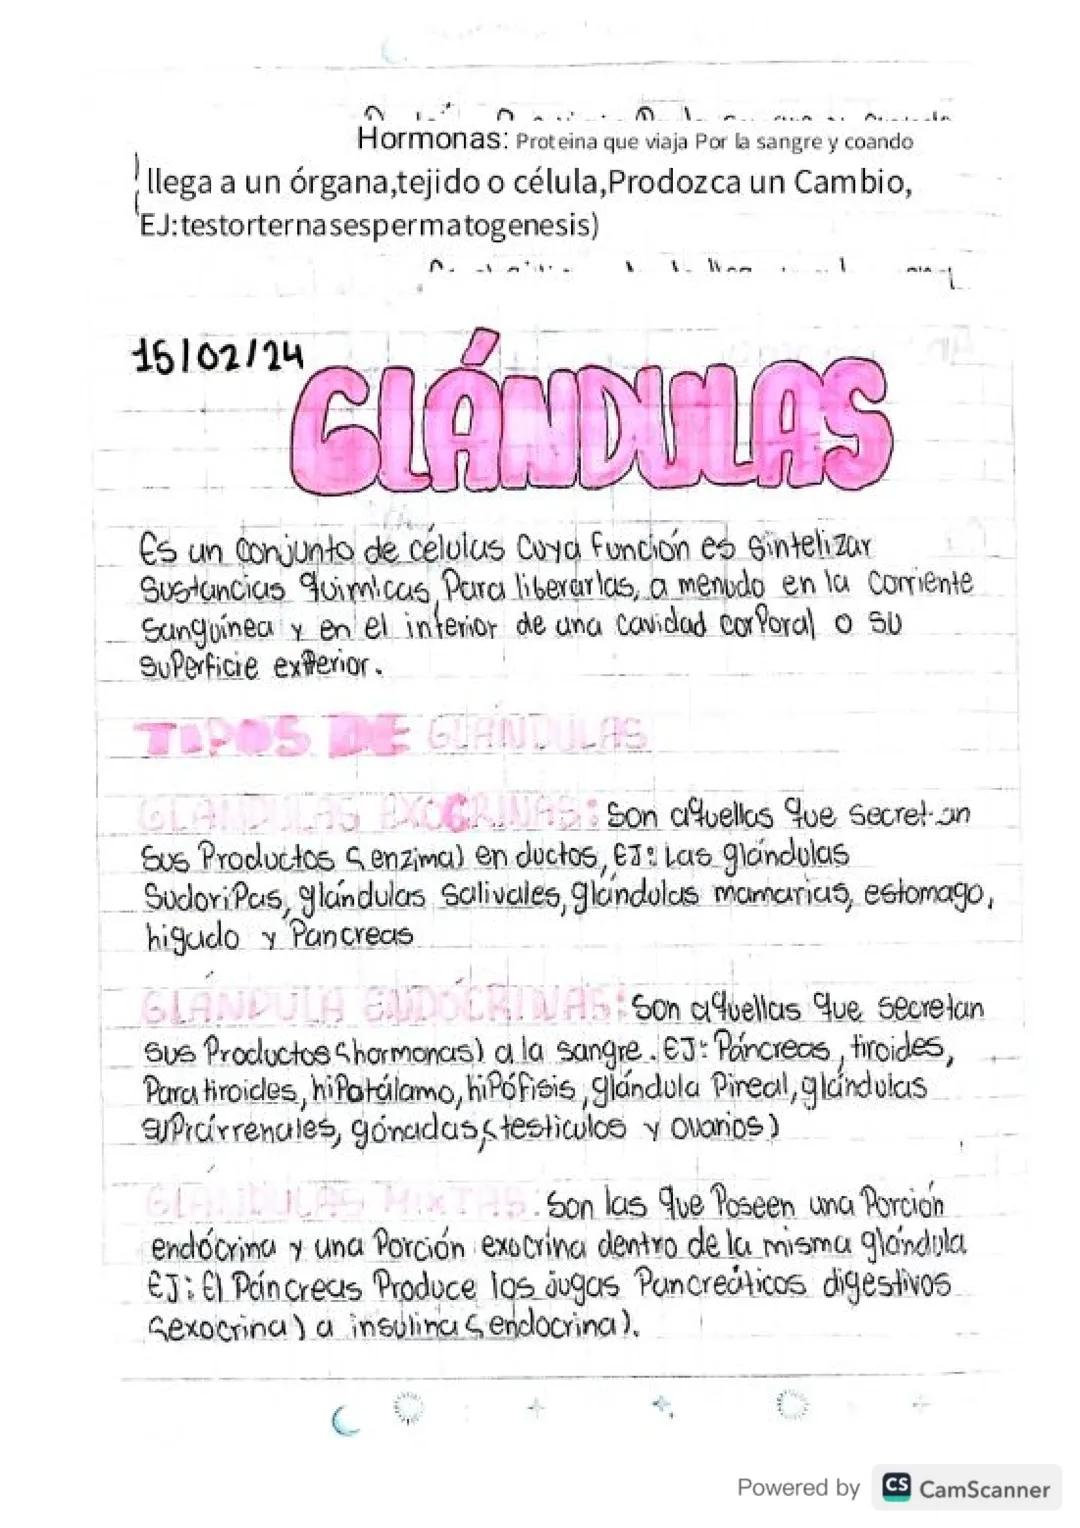 Hormonas: Proteina que viaja Por la sangre y coando
llega a un órgana,tejido o célula,Prodozca un Cambio,
EJ:testorternasespermatogenesis)
15/02/24
GLÁNDULAS
Es un conjunto de células Cuya Función es Sintelizar
Sustancias químicas Para liberarlas, a menudo en la Corriente
Sanguínea y en el interior de una cavidad corporal o su
superficie exterior.
TIPOS DE GLANDULAS
GLANDULAS EXOCRINAS: Son aquellas que secretan
Sus Productos (enzima) en ductos, EJ: Las glándulas
Sudoripas, glándulas Salivales, glándulas mamarias, estomago,
higado y Pancreas
GLANDULA ENDÓCRINAS: Son aquellas que secretan
sus Productos (hormonas) a la sangre. EJ: Páncreas, tiroides,
Paratiroides, hipotálamo, hipófisis, glándula Pireal, glándulas
suprarrenales, gónadas (testiculos y ovarios)
GLANDULAS MIXTAS: Son las que Poseen una Porción
endócrina y una Porción exocrina dentro de la misma glándula
EJ: El Páncreas Produce los jugas Pancreáticos digestivos
(exocrina) a insulina (endocrina).
Powered by CS CamScanner